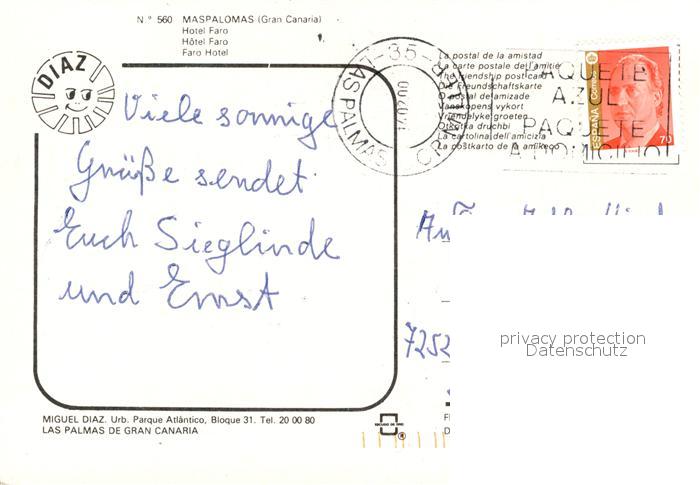 N° 560 MASPALOMAS (Gran Canaria)
Hotel Faro
Hôtel Faro
Faro Hotel
DIAZ
Viele sonnige
Grüße sendet
Euch Sieglinde
und Ernst
LAS PALMAS
La postal de la amistad
La carte postale de l'amitié
The friendship postcard
Die Freundschaftskarte
O postal de amizade
Vänskapens vykort
Vriendelyke groeten
La cartolina dell'amicizia
La postkarto de la amikeco
PAQUETE
AZUL
PAQUETE
A DOMICILIO
ESPAÑA Correos
70
An
7252
privacy protection
Datenschutz
MIGUEL DIAZ. Urb. Parque Atlántico, Bloque 31. Tel. 20 00 80
LAS PALMAS DE GRAN CANARIA
ESCUDO DE ORO